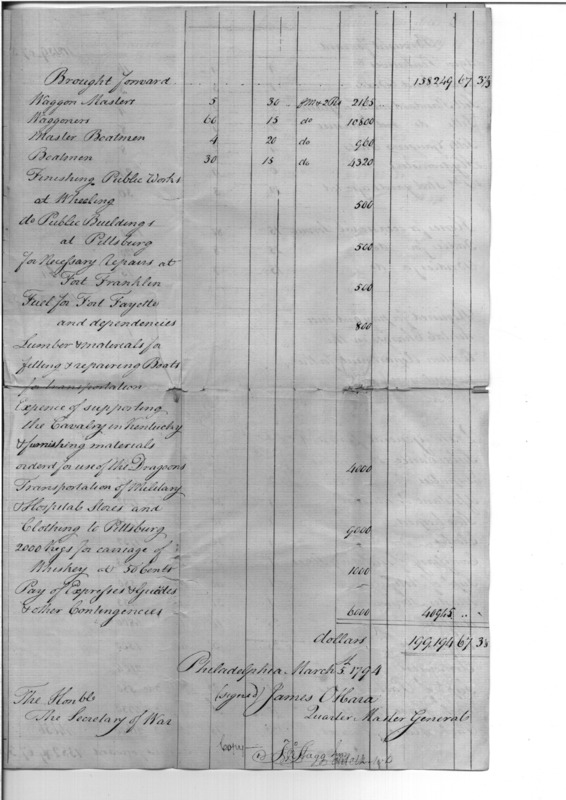 Brought forward 158249 67 3/8
Waggon Masters 5 36 2165
Waggoners 60 15 do 10800
Master Boatmen 4 20 do 960
Boatmen 30 15 do 4320
Finishing Public Works
at Wheeling 500
do Public Buildings
at Pittsburg 500
for Necessary repairs at
Fort Franklin 500
Fuel for Fort Fayette
and dependencies 800
Lumber & materials for
fitting & repairing Boats
for transportation
Expence of supporting
the Cavalry in Kentucky
& furnishing materials
orderd for use of the Dragoons 4000
Transportation of Military
& Hospital Stores and
Clothing to Pittsburg 9000
2000 kegs for carriage of
Whiskey at 50 Cents 1000
Pay of Expresses & Guides
& other Contingencies 6000 40945 " "
dollars 199,194 67 3/8
Philadelphia March 5th 1794
(signed) James OHara
Quarter Master General
The Honble
The Secretary of War
Copy
Jn Stagg